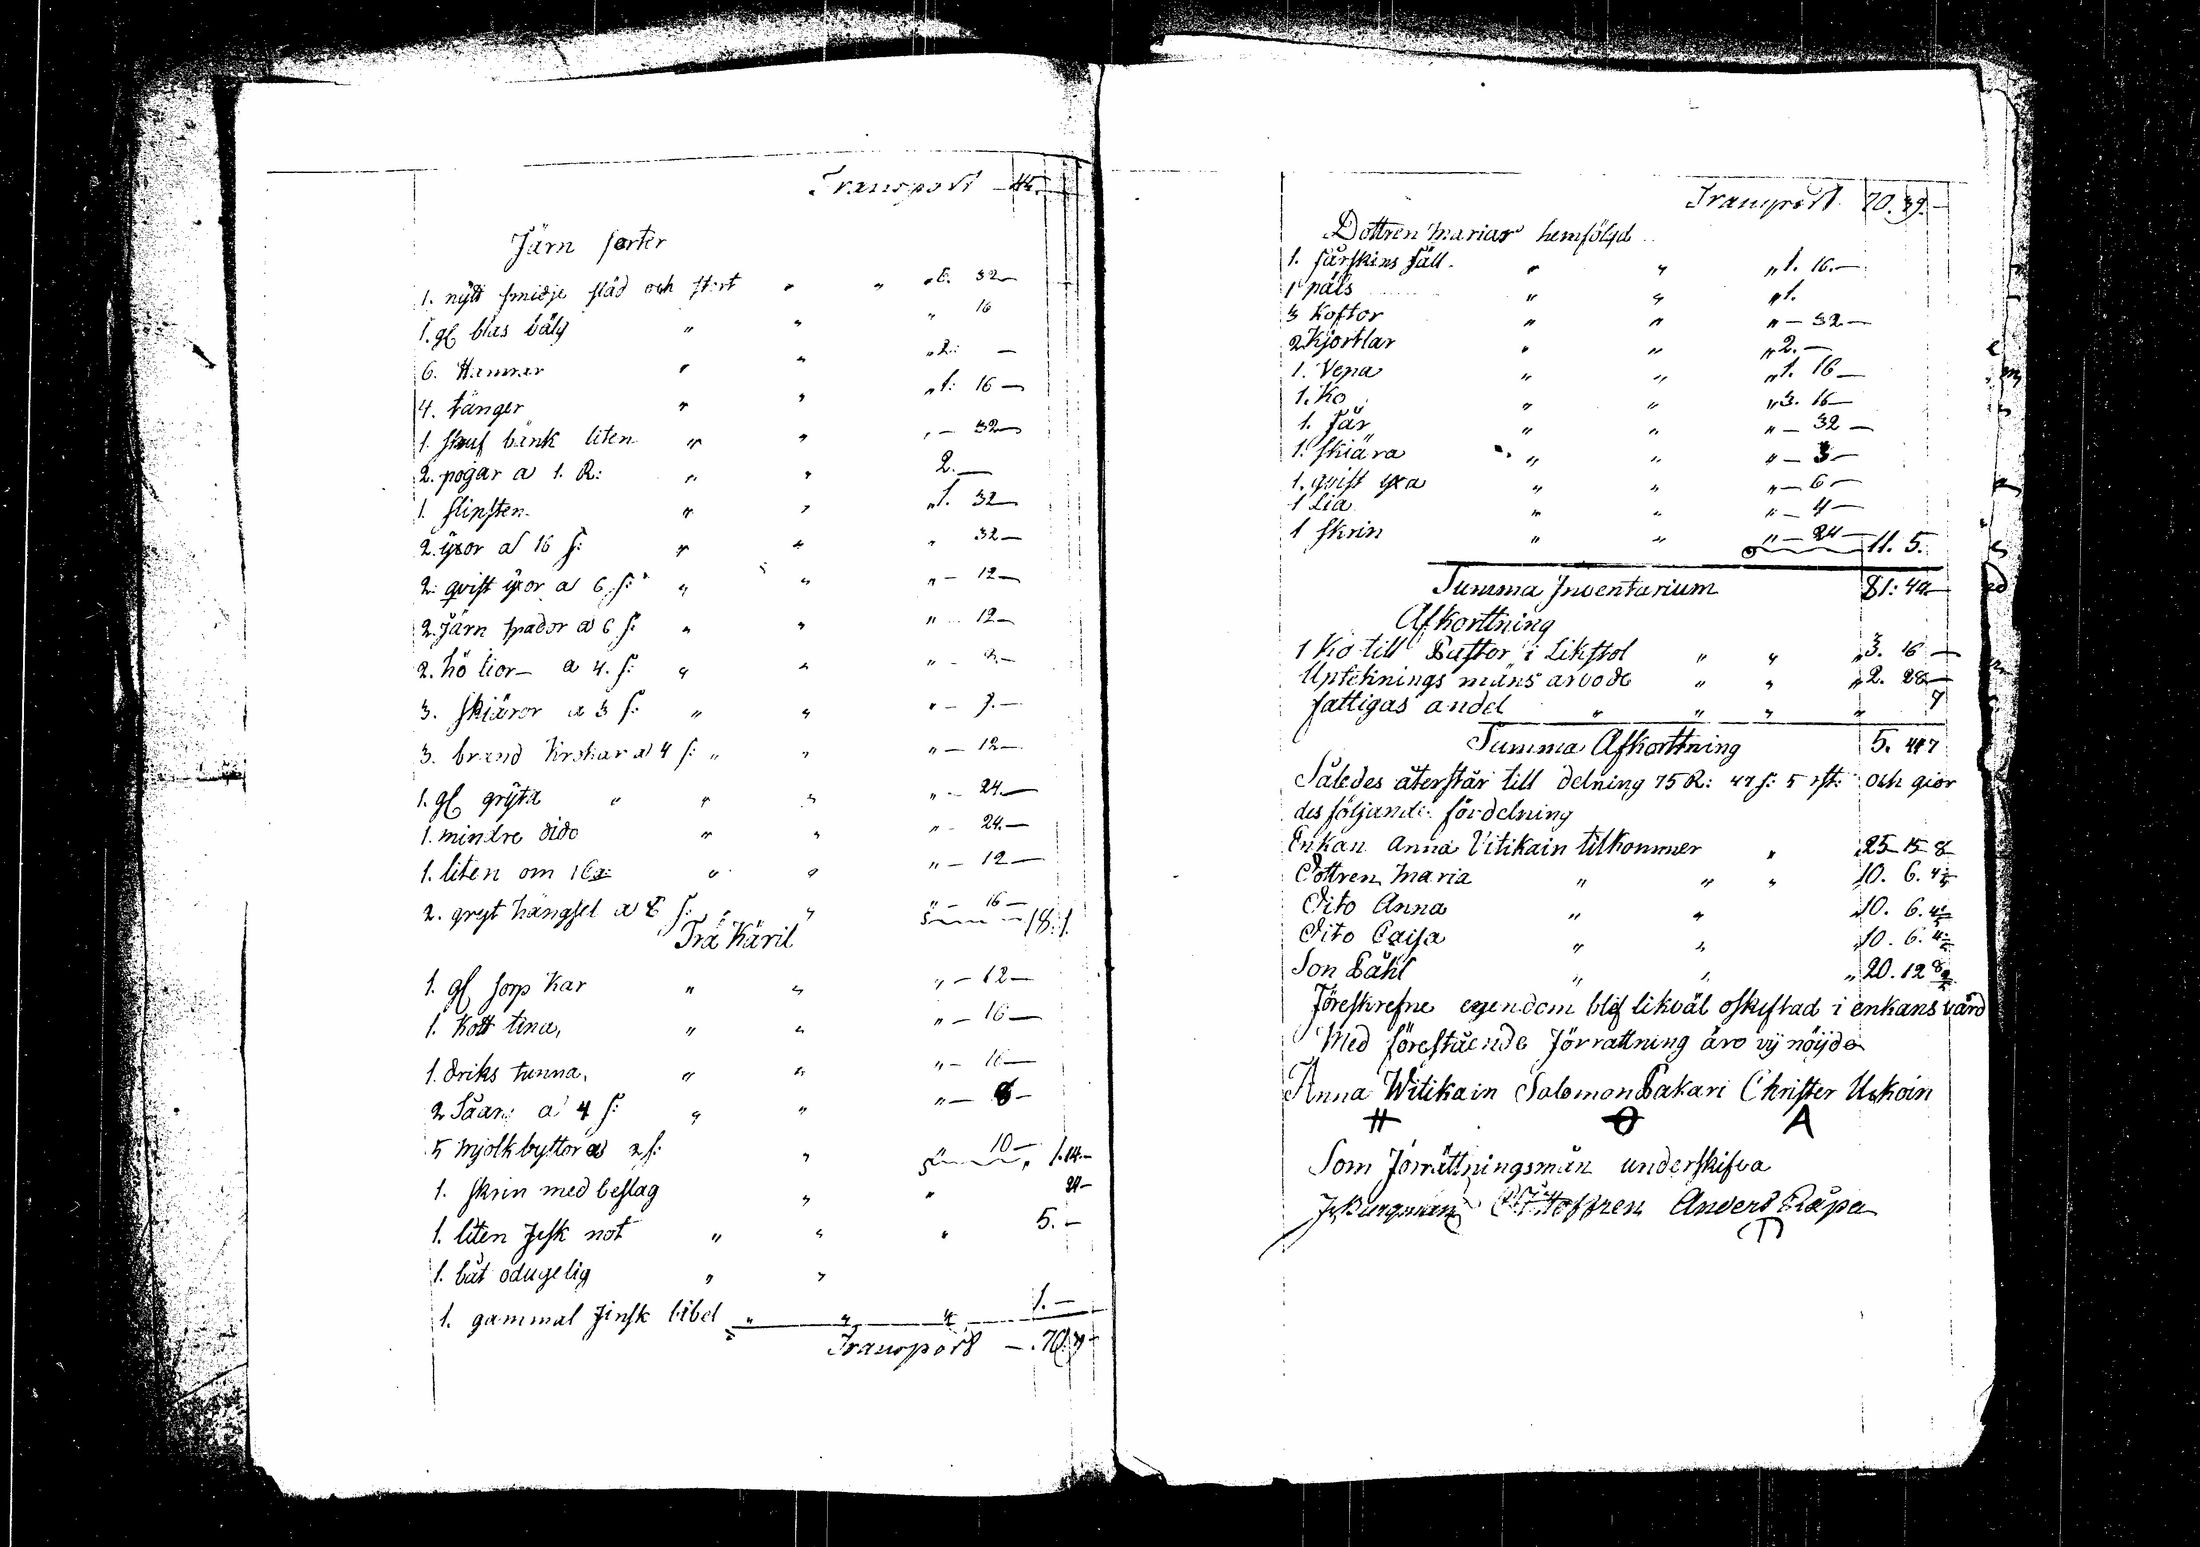 Transport 45.
Järn sorter
1. nytt smidje städ och stort " " " 6. 32—
1. gl blas bälg " " " 16
6. Hamrar " " " 2: —
4. tänger " " " 1: 16—
1. skruf bänk liten " " " — 32—
2. pogar a 1. R: " " 2.—
1 slipsten " " " 1. 32—
2. yxor a 16 s: " " " 32—
2. qvist yxor a 6 s: " " " — 12—
2. Järn spador a 6 s: " " " — 12—
2. hö lior— a 4. s: " " " — 8.—
3. skiäror a 3 s: " " " — 9.—
3. brand krokar a 4 s: " " " — 12—
1. gl gryta " " " " — 24.—
1. mindre dido " " " — 24.—
1. liten om 16 " " " — 12—
2. gryt hängsel a 8 s: " " " — 16—
Summa 18:1.
Trä Käril
1. gl sorp kar " " " — 12—
1. Kött tina, " " " — 16—
1. driks tunna, " " " — 16—
2 Såar: a 4 s: " " " — 8—
5 Mjölk byttor a 2 s: " 10—
Summa " 1.14.—
1. skrin med beslag " " 24—
1. liten fisk not " " " 5.—
1. båt odugelig " "
1. gammal finsk bibel " " " 1.—
Transport —.70.39—
Transport 70.39.—
Dottren Marias hemföljd
1. fårskins fäll " " " 1. 16.—
1 päls " " " 1.
3 Koftor " " " — 32—
2 Kjortlar " " " 2.—
1. Vepa " " " 1. 16—
1. Ko " " " 3. 16—
1. Får " " " — 32—
1. skiära " " " — 3—
1. qvist yxa " " " — 6—
1 Lia " " " — 4—
1 skrin " " " — 24—
11. 5.
Summa Inventarium 81:44—
Afkorttning
1 Ko till Pastor i Likstol " " " 3. 16—
Upteknings mäns arvode " " " 2. 28—
fattigas andel " " " " 7
Summa Afkorttning 5. 44 7
Således återstår till delning 75 R: 47 s: 5 rst: och gior
des följande fördelning
Enkan Anna Vitikain tilkommer " 25 15 8
Dottren Maria " " " 10. 6. 4
Dito Anna " " " 10. 6. 4
Dito Caisa " " " 10. 6. 4
Son Påhl " " " 20. 12 8
Föreskrefne egendom blef likväl oskiftad i enkans vård
Med förestående förrattning äro vij nöijde
Anna Witikain Salomon Pakari Christer Uskoin
H O A
Som förrättningsmän underskifva
J. Burgman Anders Räpa